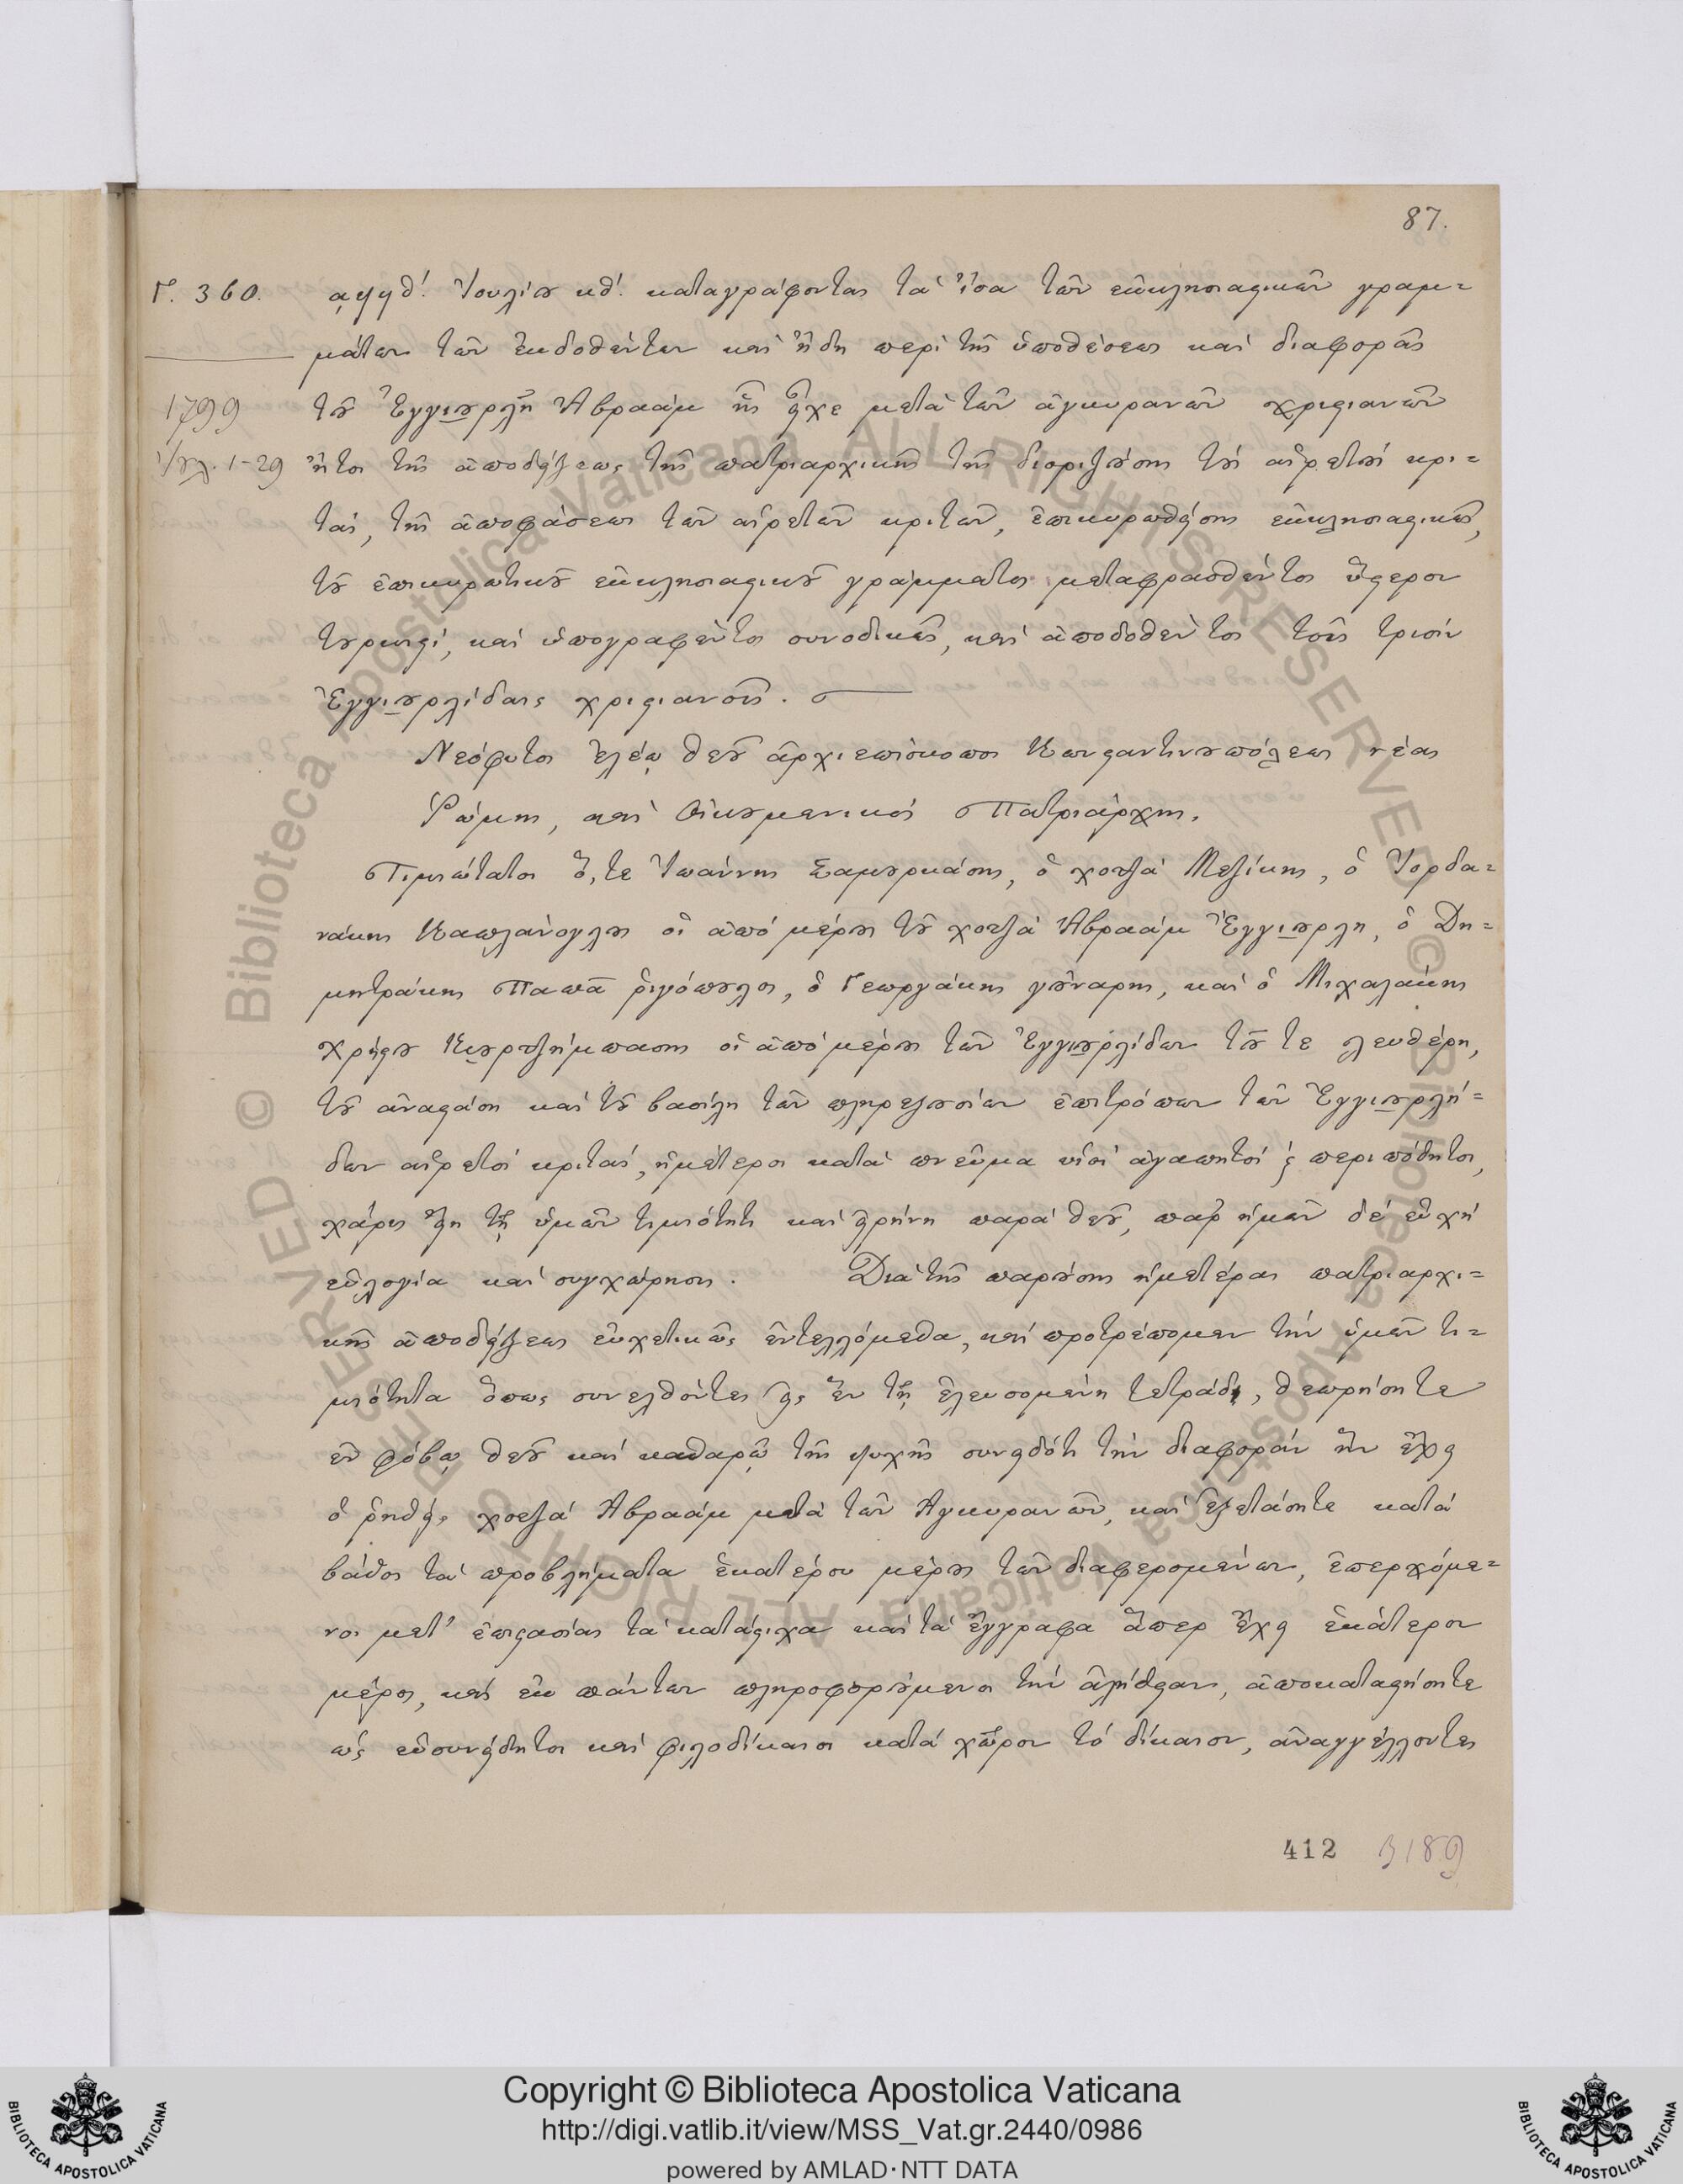 87.
Γ. 360.
͵αψϟθʹ. Ἰουλίου κθʹ. καταγράφονται τὰ ἴσα τῶν ἐκκλησιαστικῶν γραμ=
μάτων τῶν ἐκδοθέντων καὶ ἤδη περὶ τῆς ὑποθέσεως καὶ διαφορᾶς
1799
τοῦ Ἐγγιουρλῆ Ἀβραὰμ ἧς εἶχε μετὰ τῶν ἀγκυρανῶν χριστιανῶν
Ἰουλ. 1-29
ἤτοι τῆς ἀποδείξεως τῆς πατριαρχικῆς τῆς διοριζούσης τοὺς αἱρετοὺς κρι=
τάς, τῆς ἀποφάσεως τῶν αἱρετῶν κριτῶν, ἐπικυρωθείσης ἐκκλησιαστικῶς,
τοῦ ἐπικυρωτικοῦ ἐκκλησιαστικοῦ γράμματος μεταφρασθέντος ὕστερον
τουρκιστί, καὶ ὑπογραφέντος συνοδικῶς, καὶ ἀποδοθέντος τοῖς τρισὶν
Ἐγγιουρλίδαις χριστιανοῖς.
Νεόφυτος ἐλέῳ θεοῦ ἀρχιεπίσκοπος Κωνσταντινουπόλεως νέας
Ῥώμης, καὶ Οἰκουμενικὸς Πατριάρχης.
Τιμιώτατοι ὅ,τε Ἰωάννης Σαμουρκάσης, ὁ χοτζᾶ Μεζίκης, ὁ Ἰορδα=
νάκης Καπλάνογλους οἱ ἀπὸ μέρους τοῦ χοτζᾶ Ἀβραὰμ Ἐγγιουρλῆ, ὁ Δη=
μητράκης Παπᾶ ῥιγόπουλος, ὁ Γεωργάκης γούναρης, καὶ ὁ Μιχαλάκης
χρήστου Κιουρτζήμπασης οἱ ἀπὸ μέρους τῶν Ἐγγιουρλίδων τοῦ τε λευθέρη,
τοῦ ἀναστάση καὶ τοῦ βασίλη τῶν πληρεξουσίων ἐπιτρόπων τῶν Ἐγγιουρλή=
δων αἱρετοὶ κριταί, ἡμέτεροι κατὰ πνεῦμα υἱοὶ ἀγαπητοὶ ϗ περιπόθητοι,
χάρις εἴη τῇ ὑμῶν τιμιότητι καὶ εἰρήνη παρὰ θεοῦ, παρ' ἡμῶν δὲ εὐχὴ
εὐλογία καὶ συγχώρησις. Διὰ τῆς παρούσης ἡμετέρας πατριαρχι=
κῆς ἀποδείξεως εὐχετικῶς ἐντελλόμεθα, καὶ προτρέπομεν τὴν ὑμῶν τι=
μιότητα ὅπως συνελθόντες εἰς ἓν τῇ ἐλευσομένῃ τετράδι, θεωρήσητε
ἐν φόβῳ θεοῦ καὶ καθαρῷ τῆς ψυχῆς συνειδότι τὴν διαφορὰν ἣν ἔχει
ὁ ῥηθεὶς χοτζᾶ Ἀβραὰμ μετὰ τῶν Ἀγκυρανῶν, καὶ ἐξετάσητε κατὰ
βάθος τὰ προβλήματα ἑκατέρου μέρους τῶν διαφερομένων, ἐπερχόμε=
νοι μετ' ἐπιστασίας τὰ κατάστιχα καὶ τὰ ἔγγραφα ἅπερ ἔχει ἑκάτερον
μέρος, καὶ ἐκ πάντων πληροφορούμενοι τὴν ἀλήθειαν, ἀποκαταστήσητε
ὡς εὐσυνείδητοι καὶ φιλοδίκαιοι κατὰ χῶρον τὸ δίκαιον, ἀναγγέλλοντες
412 3189
© Biblioteca Apostolica Vaticana ALL RIGHTS RESERVED
Copyright © Biblioteca Apostolica Vaticana
http://digi.vatlib.it/view/MSS_Vat.gr.2440/0986
powered by AMLAD·NTT DATA
BIBLIOTECA APOSTOLICA VATICANA
BIBLIOTECA APOSTOLICA VATICANA